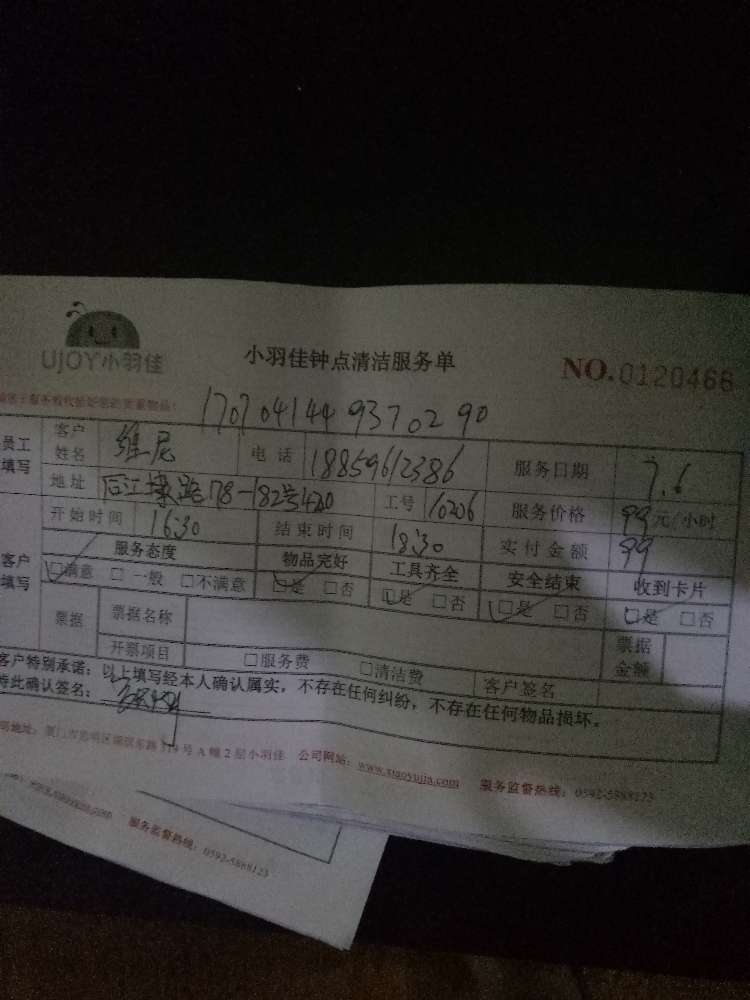 UJOY小羽佳
小羽佳钟点清洁服务单
NO.0120466
1707041449370290
员工填写 客户姓名 维尼 电话 18859612386 服务日期 7.6
地址 后江埭路78-182号 工号 10206 服务价格 99元/小时
开始时间 16:30 结束时间 18:30 实付金额 99
客户填写 服务态度 物品完好 工具齐全 安全结束 收到卡片
□满意 □一般 □不满意 □是 □否 □是 □否 □是 □否 □是 □否
票据 票据名称 票据金额
开票项目 □服务费 □清洁费 客户签名
客户特别承诺：以上填写经本人确认属实，不存在任何纠纷，不存在任何物品损坏。
特此确认签名：
号A幢2层小羽佳 公司网站：www.xiaoyujia.com 服务监督热线：0592-5888123
服务监督热线：0592-5888123